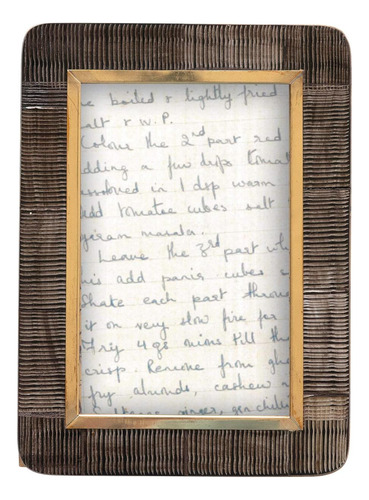 boiled & lightly fried
salt & W.P.
Colour the 2nd part red
adding a few drops tomat
dissolved in 1 dsp warm
add tomatoe cubes salt
garam masala.
Leave the 3rd part whi
this add panir cubes
Shake each part throu
it on very slow fire for
Fry 4 gs onions till th
crisp. Remove from ghe
fry almonds, cashew n
ginger, gen chili